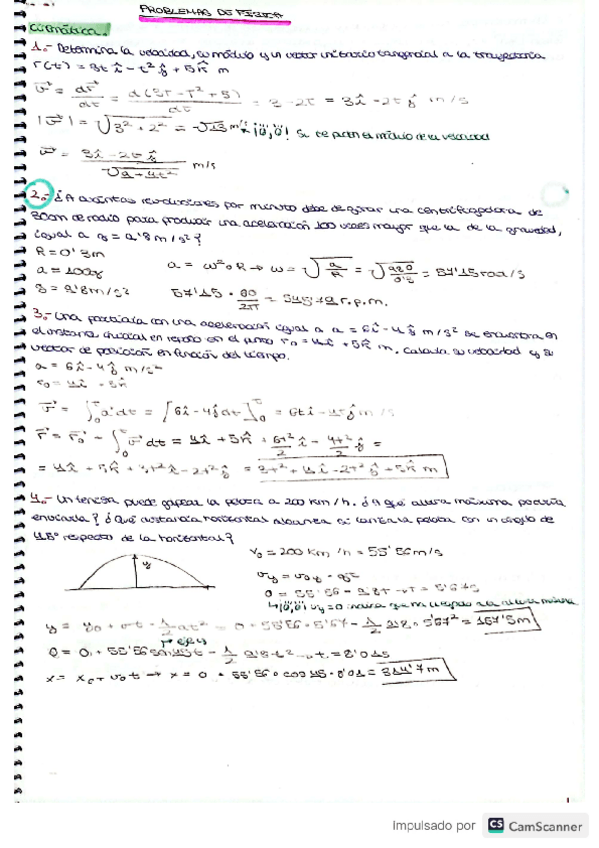 PROBLEMAS DE FÍSICA
Cinemática.
1.- Determina la velocidad, su módulo y un vector unitario tangencial a la trayectoria
r(t) = 3t î - t² ĵ + 5k̂ m
v⃗ = dr⃗/dt = d(3t - t² + 5)/dt = 3 - 2t = 3î - 2t ĵ m/s
|v⃗| = √(3² + 2²) = √13 m/s ¡¡¡ô,ô! Se pide el módulo de la velocidad
v⃗ = 3î - 2t ĵ / √(9 + 4t²) m/s
2.- ¿A cuántas revoluciones por minuto debe de girar una centrifugadora de
30cm de radio para producir una aceleración 100 veces mayor que la de la gravedad,
igual a g = 9'8 m/s²?
R = 0'3m
a = 100g
g = 9'8 m/s²
a = ω² · R → ω = √(a/R) = √(980/0'3) = 57'15 rad/s
57'15 · 60/2π = 545'79 r.p.m.
3.- Una partícula con una aceleración igual a a = 6î - 4ĵ m/s² se encuentra en
el instante inicial en reposo en el punto r₀ = 4î + 5k̂ m. Calcula su velocidad y su
vector de posición en función del tiempo.
a = 6î - 4ĵ m/s²
r₀ = 4î + 5k̂
v⃗ = ∫₀ᵗ a dt = [6î - 4ĵ dt]₀ᵗ = 6t î - 4t ĵ m/s
r⃗ = r⃗₀ + ∫₀ᵗ v⃗ dt = 4î + 5k̂ + 6t²/2 î - 4t²/2 ĵ =
= 4î + 5k̂ + 3t² î - 2t² ĵ = 3t² + 4î - 2t² ĵ + 5k̂ m
4.- Un tenista puede golpear la pelota a 200 km/h. ¿A qué altura máxima podría
enviarla? ¿Qué distancia horizontal alcanza si lanza la pelota con un ángulo de
45° respecto de la horizontal?
v₀ = 200 km/h = 55'56 m/s
y
v_y = v₀y - gt
0 = 55'56 - 9'8t → t = 5'67s
y = y₀ + v₀t - 1/2 at² = 0 + 55'56 · 5'67 - 1/2 9'8 · 5'67² = 157'5m
0 = 0 + 55'56 sen 45 t - 1/2 9'8 t² → t = 8'01s
x = x₀ + v₀t → x = 0 + 55'56 · cos 45 · 8'01 = 314'7 m
1
Impulsado por CS CamScanner